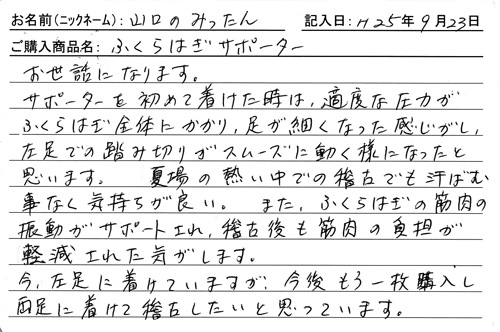 お名前(ニックネーム):山口のみったん 記入日:H25年9月23日
ご購入商品名:ふくらはぎサポーター
お世話になります。
サポーターを初めて着けた時は、適度な圧力が
ふくらはぎ全体にかかり、足が細くなった感じがし、
左足での踏み切りがスムーズに動く様になったと
思います。 夏場の熱い中での稽古でも汗ばむ
事なく気持ちが良い。 また、ふくらはぎの筋肉の
振動がサポートエれ、稽古後も筋肉の負担が
軽減エれた気がします。
今、左足に着けていますが、今後もう一枚購入し
両足に着けて稽古したいと思っています。